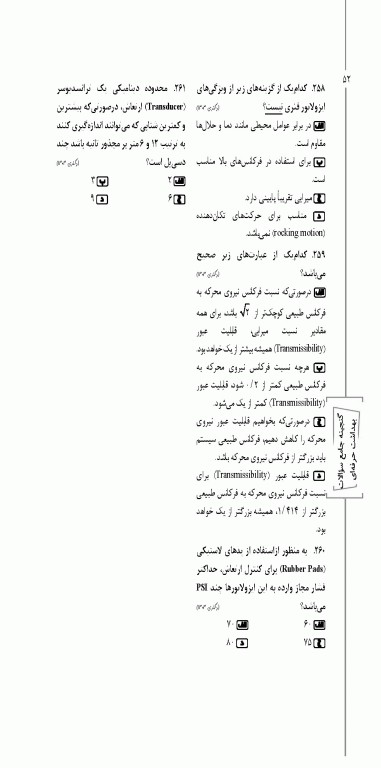 ۵۲
۲۵۸. کدام‌یک از گزینه‌های زیر از ویژگی‌های
ایزولاتور فنری نیست؟ (دکتری ۱۴۰۳)
الف در برابر عوامل محیطی مانند دما و حلال‌ها
مقاوم است.
ب برای استفاده در فرکانس‌های بالا مناسب
است.
ج میرایی تقریباً پایینی دارد.
د مناسب برای حرکت‌های تکان‌دهنده
(rocking motion) نمی‌باشد.
۲۵۹. کدام‌یک از عبارت‌های زیر صحیح
می‌باشد؟ (دکتری ۱۴۰۳)
الف درصورتی‌که نسبت فرکانس نیروی محرکه به
فرکانس طبیعی کوچک‌تر از √۲ باشد، برای همه
مقادیر نسبت میرایی، قابلیت عبور
(Transmissibility) همیشه بیشتر از یک خواهد بود.
ب هرچه نسبت فرکانس نیروی محرکه به
فرکانس طبیعی کمتر از ۰/۲ شود، قابلیت عبور
(Transmissibility) کمتر از یک می‌شود.
ج درصورتی‌که بخواهیم قابلیت عبور نیروی
محرکه را کاهش دهیم، فرکانس طبیعی سیستم
باید بزرگتر از فرکانس نیروی محرکه باشد.
د قابلیت عبور (Transmissibility) برای
نسبت فرکانس نیروی محرکه به فرکانس طبیعی
بزرگتر از ۱/۴۱۴، همیشه بزرگتر از یک خواهد
بود.
۲۶۰. به منظور ازاستفاده از پدهای لاستیکی
(Rubber Pads) برای کنترل ارتعاش، حداکثر
فشار مجاز وارده به این ایزولاتورها چند PSI
می‌باشد؟ (دکتری ۱۴۰۳)
الف ۶۰ ب ۷۰
ج ۷۵ د ۸۰
۲۶۱. محدوده دینامیکی یک ترانسدیوسر
(Transducer) ارتعاش، درصورتی‌که بیشترین
و کمترین شتابی که می‌توانند اندازه‌گیری کنند
به ترتیب ۱۲ و ۶ متر بر مجذور ثانیه باشد چند
دسی‌بل است؟ (دکتری ۱۴۰۳)
الف ۲ ب ۳
ج ۶ د ۹
گنجینه جامع سؤالات
بهداشت حرفه‌ای